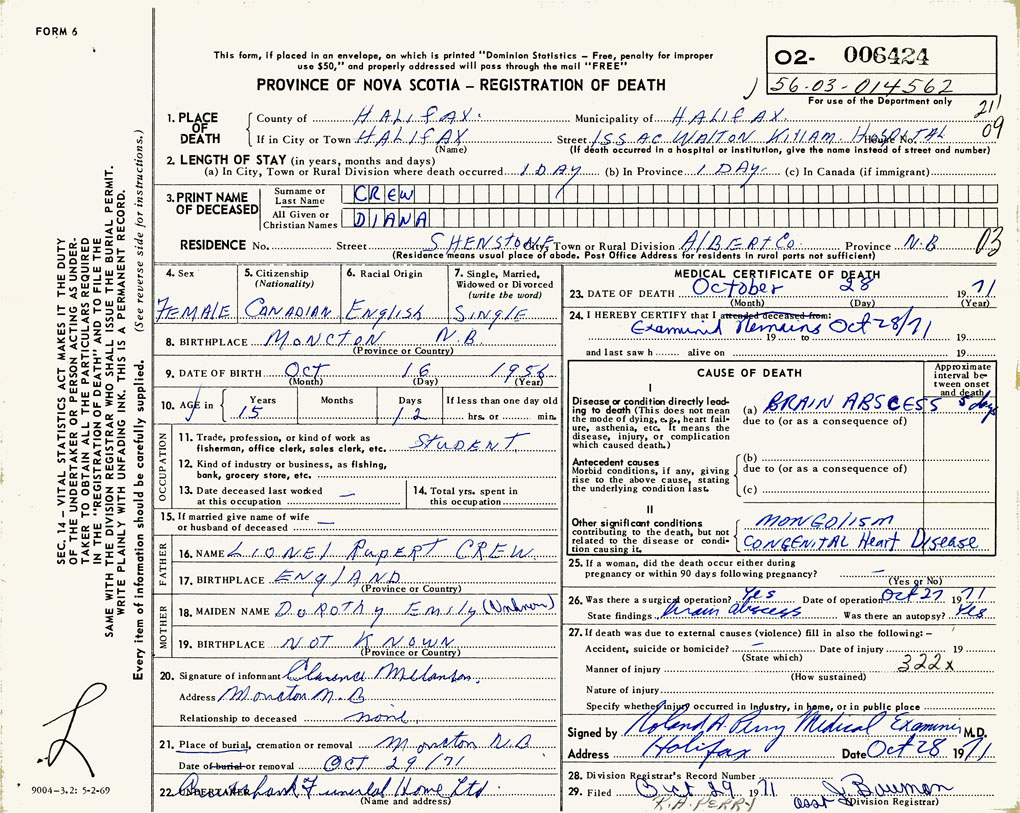 FORM 6
This form, if placed in an envelope, on which is printed "Dominion Statistics – Free, penalty for improper
use $50," and properly addressed will pass through the mail "FREE"
PROVINCE OF NOVA SCOTIA – REGISTRATION OF DEATH
02- 006424
56-03-014562
For use of the Department only
211
09
1. PLACE OF DEATH
County of HALIFAX. Municipality of HALIFAX.
If in City or Town HALIFAX Street ISSAC WALTON KILLAM HOSPITAL House No.
(Name) (If death occurred in a hospital or institution, give the name instead of street and number)
2. LENGTH OF STAY (in years, months and days)
(a) In City, Town or Rural Division where death occurred 1 DAY (b) In Province 1 DAY. (c) In Canada (if immigrant)
3. PRINT NAME OF DECEASED
Surname or Last Name CREW
All Given or Christian Names DIANA
RESIDENCE No. Street SHENSTONE City, Town or Rural Division AlBERT Co. Province N.B 03
(Residence means usual place of abode. Post Office Address for residents in rural parts not sufficient)
4. Sex FEMALE
5. Citizenship (Nationality) CANADIAN
6. Racial Origin ENGLISH
7. Single, Married, Widowed or Divorced (write the word) SINGLE
8. BIRTHPLACE MONCTON N.B.
(Province or Country)
9. DATE OF BIRTH OCT 16 1956
(Month) (Day) (Year)
10. AGE in Years 15 Months Days 12 If less than one day old hrs. or min.
OCCUPATION
11. Trade, profession, or kind of work as fisherman, office clerk, sales clerk, etc. STUDENT.
12. Kind of industry or business, as fishing, bank, grocery store, etc.
13. Date deceased last worked at this occupation —
14. Total yrs. spent in this occupation
15. If married give name of wife or husband of deceased —
FATHER
16. NAME LIONEL RUPERT CREW.
17. BIRTHPLACE ENGLAND
(Province or Country)
MOTHER
18. MAIDEN NAME DOROTHY EMILY (Unknown)
19. BIRTHPLACE NOT KNOWN
(Province or Country)
20. Signature of informant Clarence Melanson.
Address Moncton N.B
Relationship to deceased none.
21. Place of burial, cremation or removal Moncton N.B.
Date of burial or removal OCT 29/71
22. UNDERTAKER Funeral Home Ltd.
(Name and address)
MEDICAL CERTIFICATE OF DEATH
23. DATE OF DEATH October 28 1971
(Month) (Day) (Year)
24. I HEREBY CERTIFY that I attended deceased from:
Examined Remains Oct 28/71
19 to 19
and last saw h alive on 19
CAUSE OF DEATH
Approximate interval between onset and death
I
Disease or condition directly leading to death (This does not mean the mode of dying, e.g., heart failure, asthenia, etc. It means the disease, injury, or complication which caused death.)
(a) BRAIN ABSCESS 5 days
due to (or as a consequence of)
Antecedent causes
Morbid conditions, if any, giving rise to the above cause, stating the underlying condition last.
(b)
due to (or as a consequence of)
(c)
II
Other significant conditions contributing to the death, but not related to the disease or condition causing it.
MONGOLISM
CONGENITAL Heart Disease
25. If a woman, did the death occur either during pregnancy or within 90 days following pregnancy? —
(Yes or No)
26. Was there a surgical operation? Yes Date of operation Oct 27 1971
State findings brain abscess Was there an autopsy? Yes
27. If death was due to external causes (violence) fill in also the following: –
Accident, suicide or homicide? – Date of injury 19
(State which)
322x
Manner of injury
(How sustained)
Nature of injury
Specify whether injury occurred in industry, in home, or in public place
Signed by Roland A. Perry Medical Examiner M.D.
Address Halifax Date Oct 28 1971
28. Division Registrar's Record Number
29. Filed Oct 29 1971 Asst J. Bauman
(Division Registrar)
R.A. PERRY
SEC. 14 – VITAL STATISTICS ACT MAKES IT THE DUTY
OF THE UNDERTAKER OR PERSON ACTING AS UNDER-
TAKER TO OBTAIN ALL THE PARTICULARS REQUIRED
IN THE "REGISTRATION OF DEATH" AND TO FILE THE
SAME WITH THE DIVISION REGISTRAR WHO SHALL ISSUE THE BURIAL PERMIT.
WRITE PLAINLY WITH UNFADING INK. THIS IS A PERMANENT RECORD.
Every item of information should be carefully supplied. (See reverse side for instructions.)
9004-3.2: 5-2-69